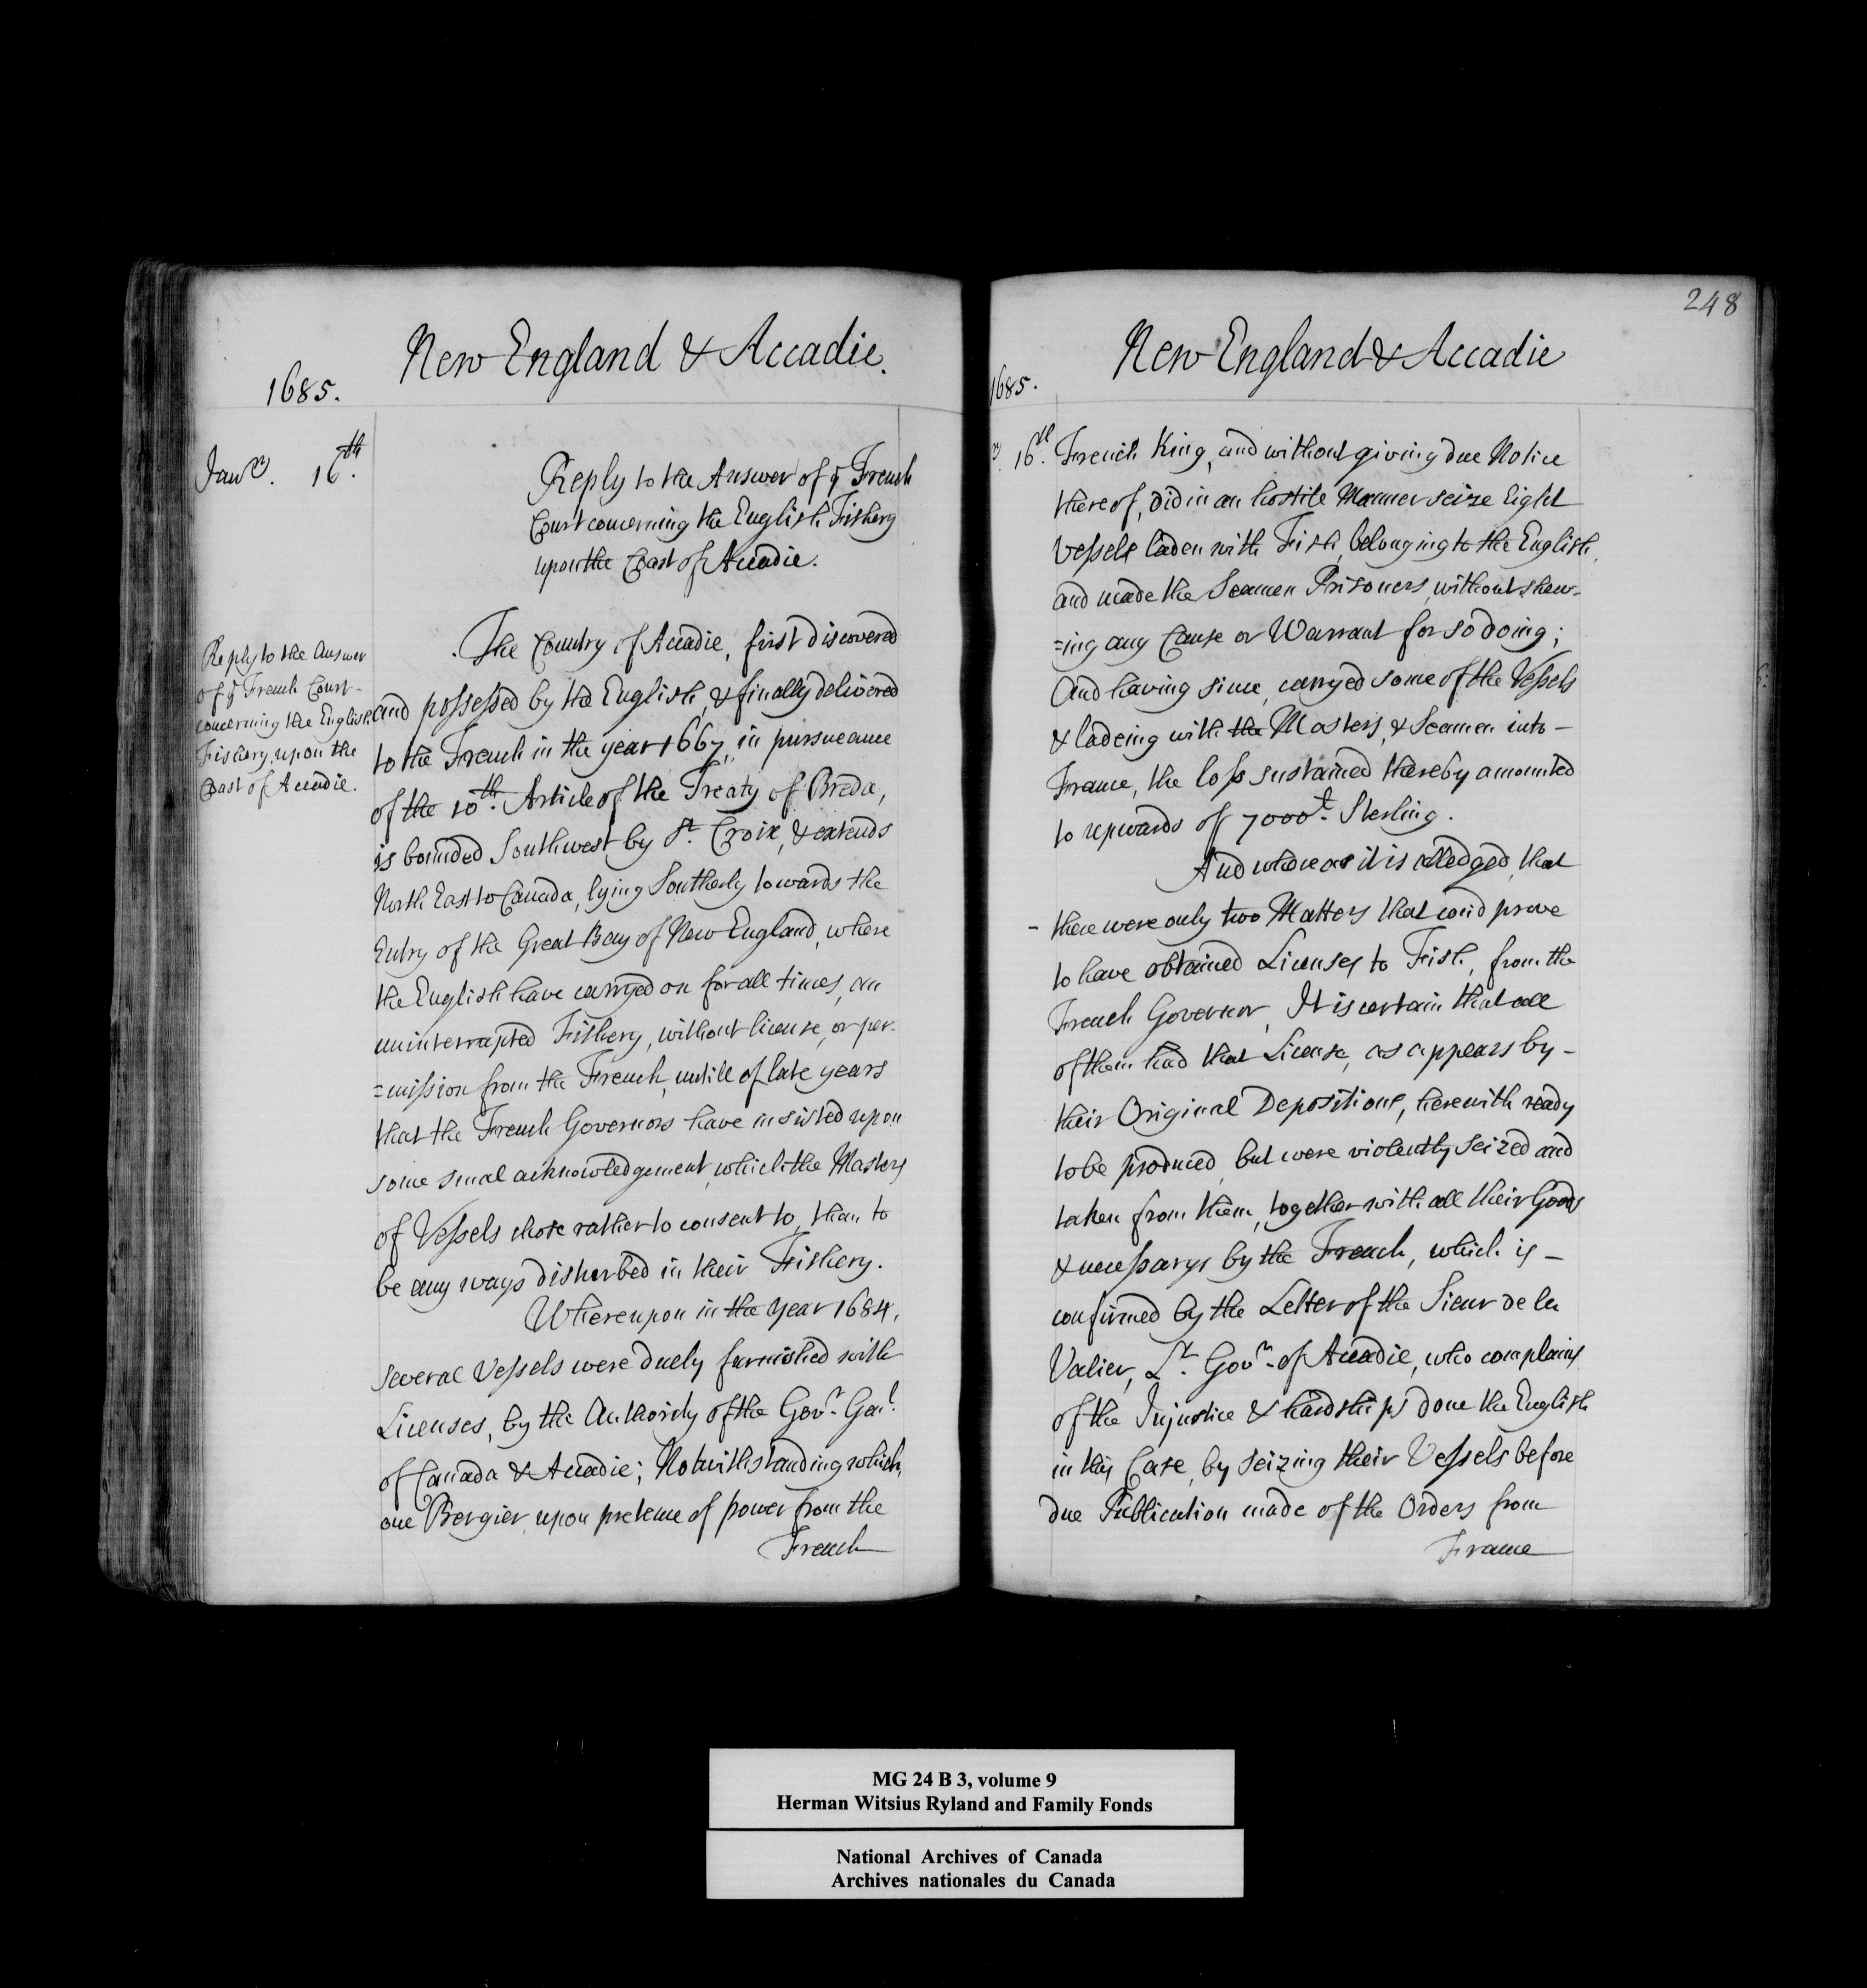 New England & Accadie.
1685.
Janry. 16th.
Reply to the Answer of ye French
Court concerning the English Fishery
upon the Coast of Accadie.
Reply to the Answer
of ye French Court-
concerning the English
Fishery upon the
Coast of Accadie.
The Country of Accadie, first discovered
and possessed by the English, & finally delivered
to the French in the year 1667, in pursueance
of the 10th. Article of the Treaty of Breda,
is bounded Southwest by St. Croix, & extends
North East to Canada, lying Southerly towards the
Entry of the Great Bay of New England, where
the English have carryed on for all times, an
uninterrupted Fishery, without license, or per-
=mission from the French, untill of late years
that the French Governors have insisted upon
some smal acknowledgement, which the Masters
of Vessels chose rather to consent to, than to
be any ways disturbed in their Fishery.
Whereupon in the year 1684,
several Vessels were duely furnished with
Licenses, by the Authority of the Govr. Genl.
of Canada & Accadie; Notwithstanding which,
one Bergier, upon pretence of power from the
French
248
New England & Accadie
1685.
16th. French King, and without giving due Notice
thereof, did in an hostile Manner seize Eight
Vessels laden with Fish, belonging to the English,
and made the Seamen Prisoners, without shew-
=ing any Cause or Warrant for so doing;
And having since, carryed some of the Vessels
& ladeing with the Masters, & Seamen into -
France, the loss sustained thereby amounted
to upwards of 7000£. Sterling.
And whereas it is alledged, that
- there were only two Matters that coud prove
to have obtained Licenses to Fish, from the
French Governor, It is certain that all
of them had that License, as appears by -
their Original Depositions, herewith ready
to be produced, but were violently seized and
taken from them, together with all their Goods
& necessarys by the French, which is -
confirmed by the Letter of the Sieur de la
Valier, Lt. Govr. of Accadie, who complains
of the Injustice & hardships done the English
in this Case, by seizing their Vessels before
due Publication made of the Orders from
France
MG 24 B 3, volume 9
Herman Witsius Ryland and Family Fonds
National Archives of Canada
Archives nationales du Canada